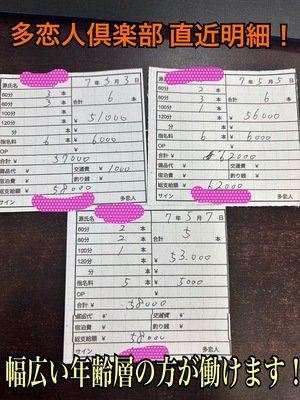 多恋人倶楽部 直近明細！
源氏名
7年5月3日
60分 3本
80分 3本 合計 6本
100分 本
120分 本 ¥51000
分 本
指名料 6本 ¥6000
OP
合計¥ 57000
備品代 ¥ 交通費 ¥1000
宿泊費 ¥ 釣り銭 ¥
総支給額 ¥ 58000
サイン 多恋人
源氏名
7年5月5日
60分 2本
80分 3本 合計
100分 1本 6本
120分 本 ¥56000
分 本
指名料 6本 ¥6000
OP
合計¥ ¥62000
備品代 ¥ 交通費 ¥
宿泊費 ¥ 釣り銭 ¥
総支給額 ¥ 62000
サイン 多恋人
源氏名
7年5月7日
60分 2本
80分 2本 5本
100分 1本
120分 本 ¥53.000
分 本
指名料 5本 5000
OP
合計¥ 58000
備品代 ¥ 交通費 ¥
宿泊費 ¥ 釣り銭 ¥
総支給額 ¥ 58000
サイン
幅広い年齢層の方が働けます！